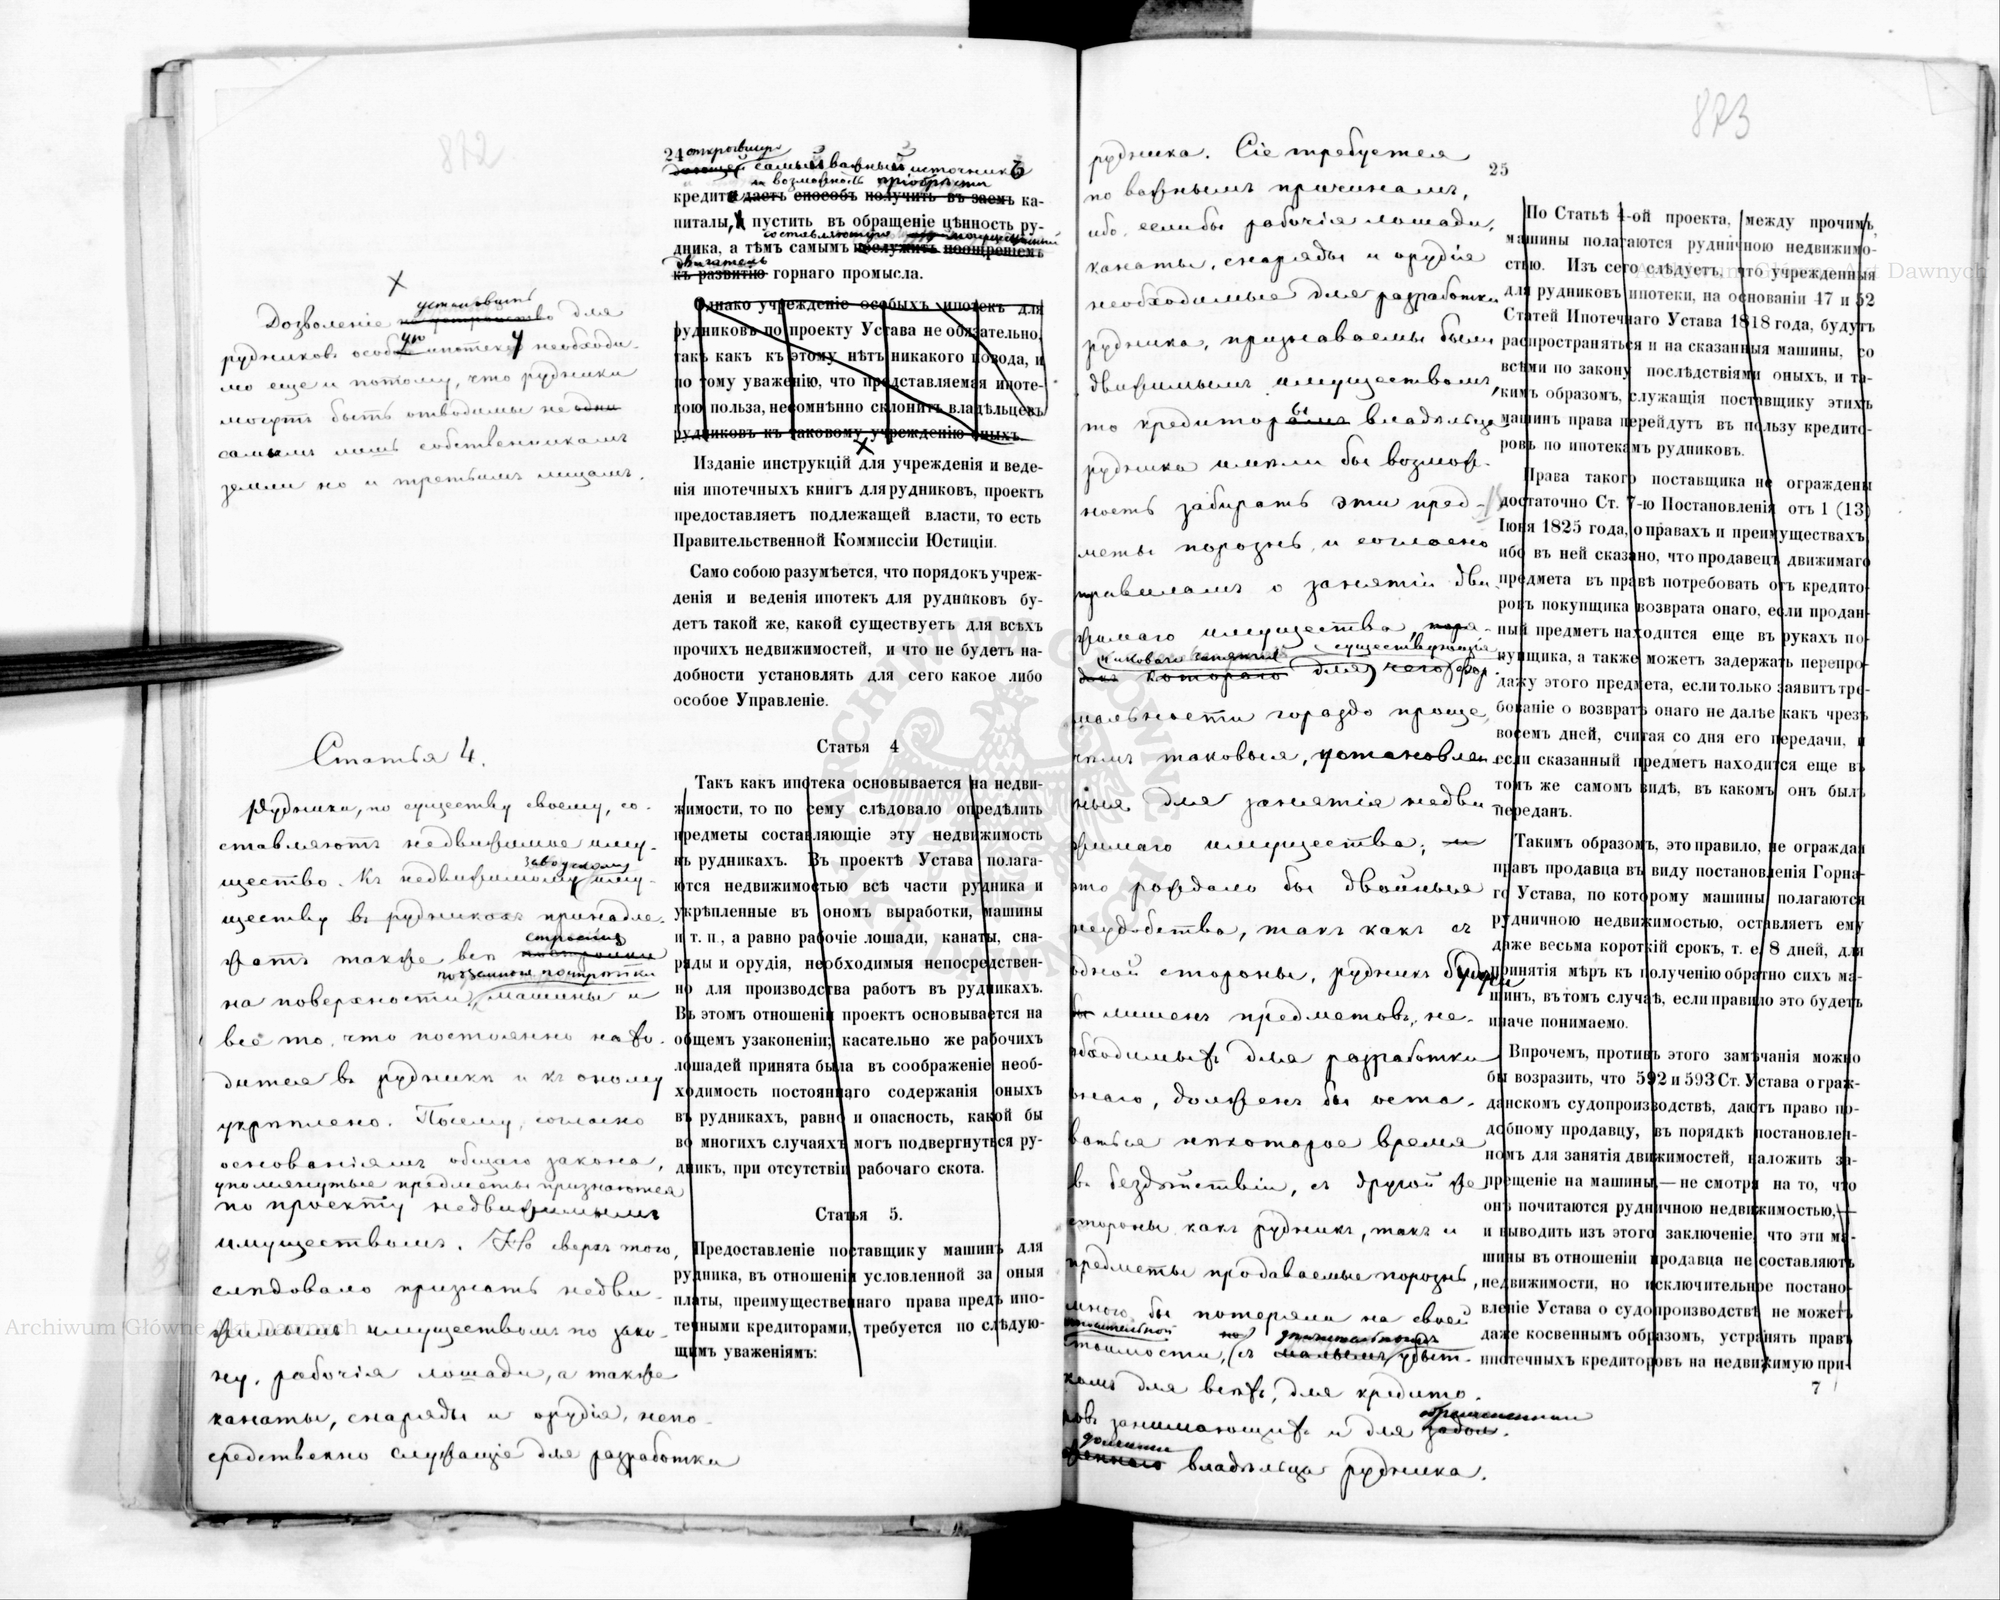 872
24
открывшую
самый важный источникъ
и возможность пріобрѣсти
кредита дастъ способъ получить въ заемъ ка-
питалы, пустить въ обращеніе цѣнность ру-
составляющую
дника, а тѣмъ самымъ послужитъ поощреніемъ
двигатель
къ развитію горнаго промысла.
Однако учрежденіе особыхъ ипотекъ для
рудниковъ по проекту Устава не обязательно,
такъ какъ къ этому нѣтъ никакого повода, и
по тому уваженію, что представляемая ипоте-
кою польза, несомнѣнно склонитъ владѣльцевъ
рудниковъ къ таковому учрежденію оныхъ.
Изданіе инструкцій для учрежденія и веде-
нія ипотечныхъ книгъ для рудниковъ, проектъ
предоставляетъ подлежащей власти, то есть
Правительственной Коммиссіи Юстиціи.
Само собою разумѣется, что порядокъ учреж-
денія и веденія ипотекъ для рудниковъ бу-
детъ такой же, какой существуетъ для всѣхъ
прочихъ недвижимостей, и что не будетъ на-
добности установлять для сего какое либо
особое Управленіе.
Статья 4
Такъ какъ ипотека основывается на недви-
жимости, то по сему слѣдовало опредѣлить
предметы составляющіе эту недвижимость
въ рудникахъ. Въ проектѣ Устава полага-
ются недвижимостью всѣ части рудника и
укрѣпленные въ ономъ выработки, машины
и т. п., а равно рабочіе лошади, канаты, сна-
ряды и орудія, необходимыя непосредствен-
но для производства работъ въ рудникахъ.
Въ этомъ отношеніи проектъ основывается на
общемъ узаконеніи; касательно же рабочихъ
лошадей принята была въ соображеніе необ-
ходимость постояннаго содержанія оныхъ
въ рудникахъ, равно и опасность, какой бы
во многихъ случаяхъ могъ подвергнуться ру-
дникъ, при отсутствіи рабочаго скота.
Статья 5.
Предоставленіе поставщику машинъ для
рудника, въ отношеніи условленной за оныя
платы, преимущественнаго права предъ ипо-
течными кредиторами, требуется по слѣдую-
щимъ уваженіямъ:
установить
Дозволеніе для
рудниковъ особую ипотеку необходи-
мо еще и потому, что рудники
могутъ быть отводимы не одни
самымъ лишь собственникамъ
земли но и третьимъ лицамъ.
Статья 4.
Рудники, по существу своему, со-
ставляютъ недвижимое иму-
заводскому
щество. Къ недвижимому иму-
ществу въ рудникахъ принадле-
строенія
жатъ также всѣ
на поверхности, машины и
всё то, что постоянно нахо-
дится въ рудникѣ и къ оному
укрѣплено. Посему, согласно
основаніямъ общаго закона,
упомянутые предметы признаются
по проекту недвижимымъ
имуществомъ. Но сверхъ того,
слѣдовало признать недви-
жимымъ имуществомъ по зако-
ну, рабочія лошади, а также
канаты, снаряды и орудія, непо-
средственно служащіе для разработки
873
рудника. Сіе требуется
по важнымъ причинамъ,
ибо, еслибы рабочія лошади,
канаты, снаряды и орудія
необходимые для разработки
рудника, признаваемы были
движимымъ имуществомъ,
то кредиторы владѣльца
рудника имѣли бы возмож-
ность забирать эти пред-
меты порознь, и согласно
правиламъ о занятіи дви-
жимаго имущества,
существующія
для чего фор-
мальности гораздо проще,
чѣмъ таковыя, установлен-
ныя для занятія недви-
жимаго имущества;
это рождало бы двойныя
неудобства, такъ какъ съ
одной стороны, рудникъ будучи
лишенъ предметовъ, не-
обходимыхъ для разработки
онаго, долженъ бы оста-
ваться нѣкоторое время
въ бездѣйствіи, съ другой же
стороны какъ рудникъ, такъ и
предметы продаваемые порознь,
много бы потеряли на своей
стоимости, съ малымъ убыт-
комъ для всѣхъ, для кредито-
ровъ занимающихъ и для
владѣльца рудника.
25
По Статьѣ 4-ой проекта, между прочимъ,
машины полагаются рудничною недвижимо-
стью. Изъ сего слѣдуетъ, что учрежденныя
для рудниковъ ипотеки, на основаніи 47 и 52
Статей Ипотечнаго Устава 1818 года, будутъ
распространяться и на сказанныя машины, со
всѣми по закону послѣдствіями оныхъ, и та-
кимъ образомъ, служащія поставщику этихъ
машинъ права перейдутъ въ пользу кредито-
ровъ по ипотекамъ рудниковъ.
Права такого поставщика не ограждены
достаточно Ст. 7-ю Постановленія отъ 1 (13)
Іюня 1825 года, о правахъ и преимуществахъ,
ибо въ ней сказано, что продавецъ движимаго
предмета въ правѣ потребовать отъ кредито-
ровъ покупщика возврата онаго, если продан-
ный предметъ находится еще въ рукахъ по-
купщика, а также можетъ задержать перепро-
дажу этого предмета, если только заявитъ тре-
бованіе о возвратѣ онаго не далѣе какъ чрезъ
восемъ дней, считая со дня его передачи, и
если сказанный предметъ находится еще въ
томъ же самомъ видѣ, въ какомъ онъ былъ
переданъ.
Такимъ образомъ, это правило, не ограждая
правъ продавца въ виду постановленія Горна-
го Устава, по которому машины полагаются
рудничною недвижимостью, оставляетъ ему
даже весьма короткій срокъ, т. е. 8 дней, для
принятія мѣръ къ полученію обратно сихъ ма-
шинъ, въ томъ случаѣ, если правило это будетъ
иначе понимаемо.
Впрочемъ, противъ этого замѣчанія можно
бы возразить, что 592 и 593 Ст. Устава о граж-
данскомъ судопроизводствѣ, даютъ право по-
добному продавцу, въ порядкѣ постановлен-
номъ для занятія движимостей, наложить за-
прещеніе на машины,—не смотря на то, что
онѣ почитаются рудничною недвижимостью,—
и выводить изъ этого заключеніе, что эти ма-
шины въ отношеніи продавца не составляютъ
недвижимости, но исключительное постано-
вленіе Устава о судопроизводствѣ не можетъ
даже косвеннымъ образомъ, устранять правъ
ипотечныхъ кредиторовъ на недвижимую при-
7
ARCHIWUM GŁÓWNE AKT DAWNYCH
Archiwum Główne Akt Dawnych
Archiwum Główne Akt Dawnych